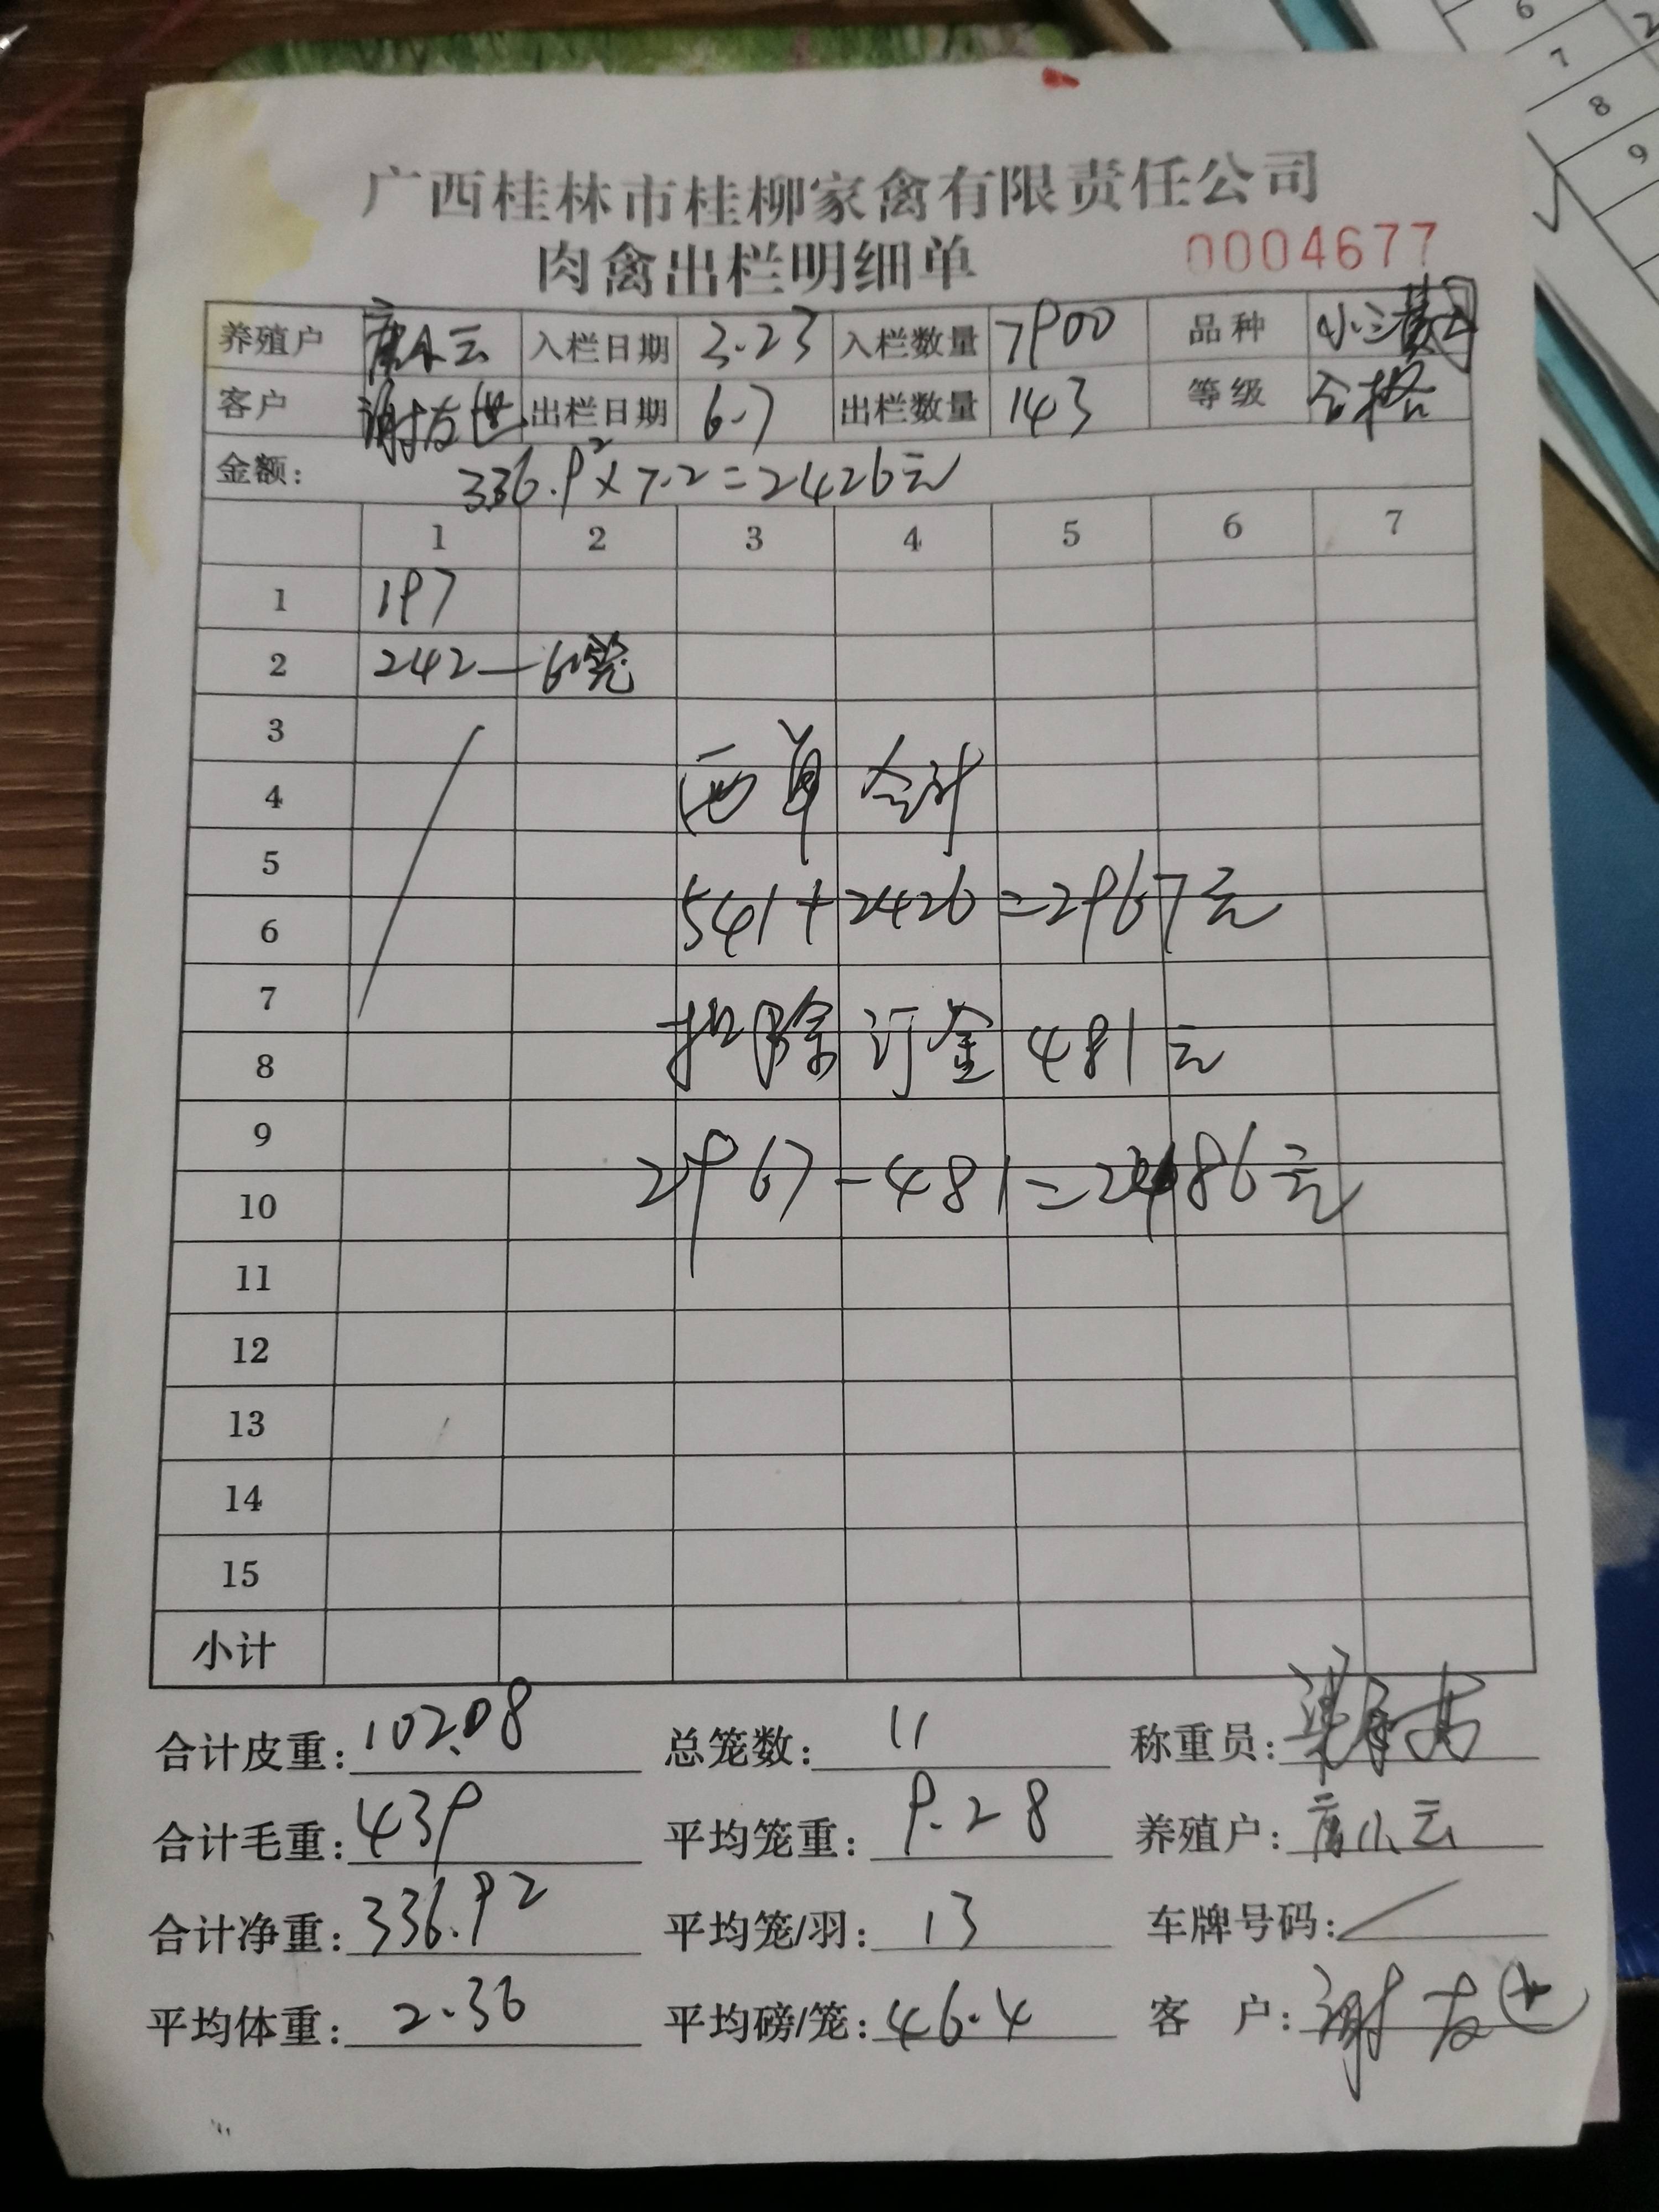 广西桂林市桂柳家禽有限责任公司
肉禽出栏明细单 0004677
养殖户 唐小云 入栏日期 3.23 入栏数量 7900 品种 小三黄
客户 谢友 出栏日期 6.7 出栏数量 143 等级 合格
金额: 336.92×7.2=2426元
1 2 3 4 5 6 7
1 197
2 242—6笼
3
4 两单合计
5
6 541+2426=2967元
7
8 扣除订金481元
9
10 2967-481=2486元
11
12
13
14
15
小计
合计皮重: 102.08 总笼数: 11 称重员:
合计毛重: 439 平均笼重: 9.28 养殖户: 唐小云
合计净重: 336.92 平均笼/羽: 13 车牌号码:
平均体重: 2.36 平均磅/笼: 46.4 客 户: 谢友
6
7
8
9
2